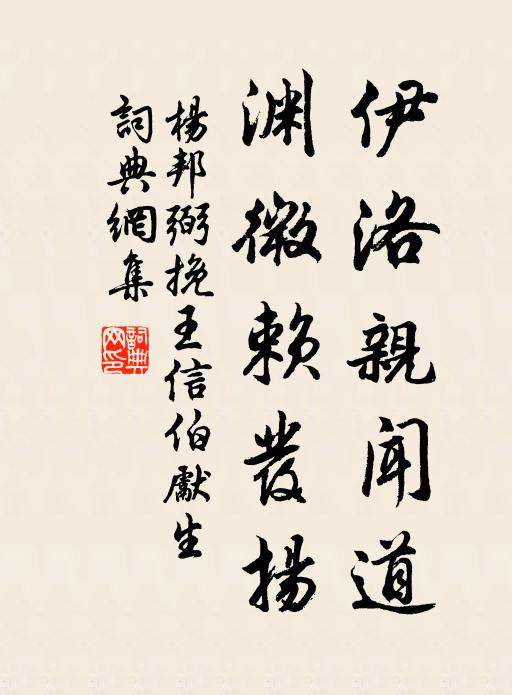 伊洛親聞道
淵微賴發揚
楊邦弼挽王信伯獻生
詞典網集
詞典
网印